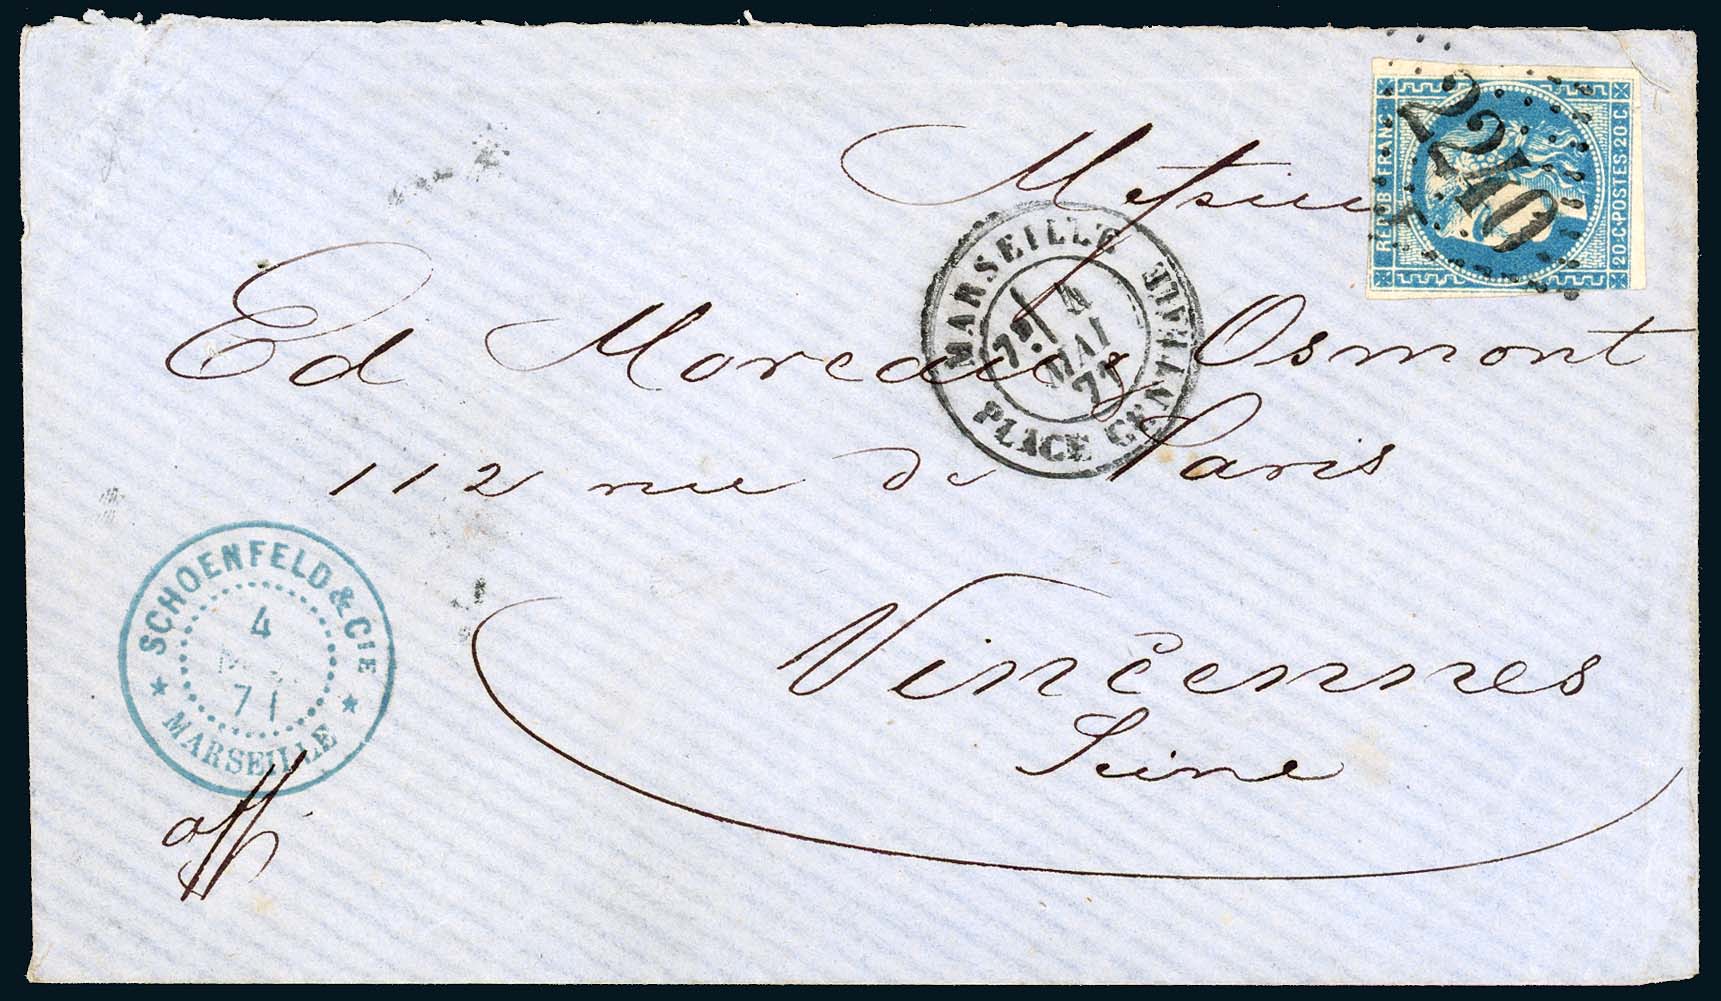 REPUB. FRANC.
20·C·POSTES·20·C
2240
MARSEILLE PLACE CENTRALE
4
MAI
71
Ed Moreau Osmont
112 rue de Paris
Vincennes
Seine
SCHOENFELD & CIE
4
71
MARSEILLE
aff